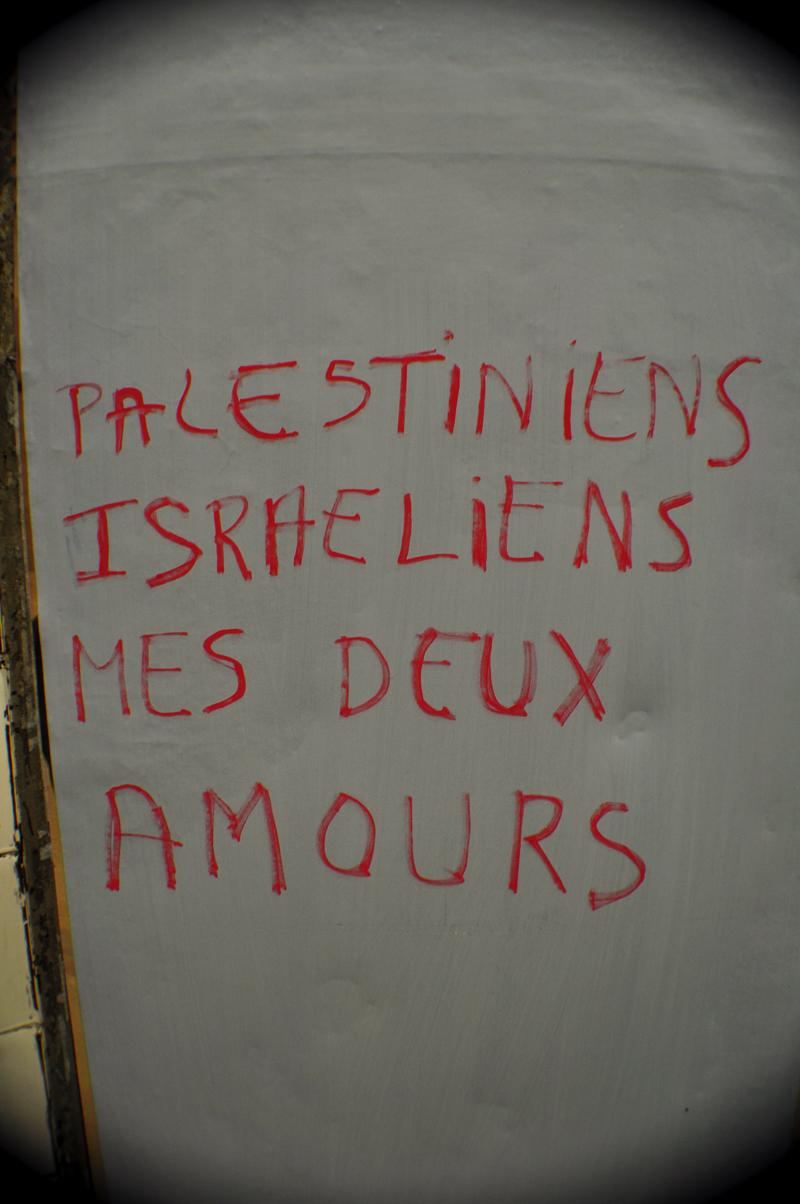 PALESTiNiENS
ISRAELiENS
MES DEUX
AMOURS